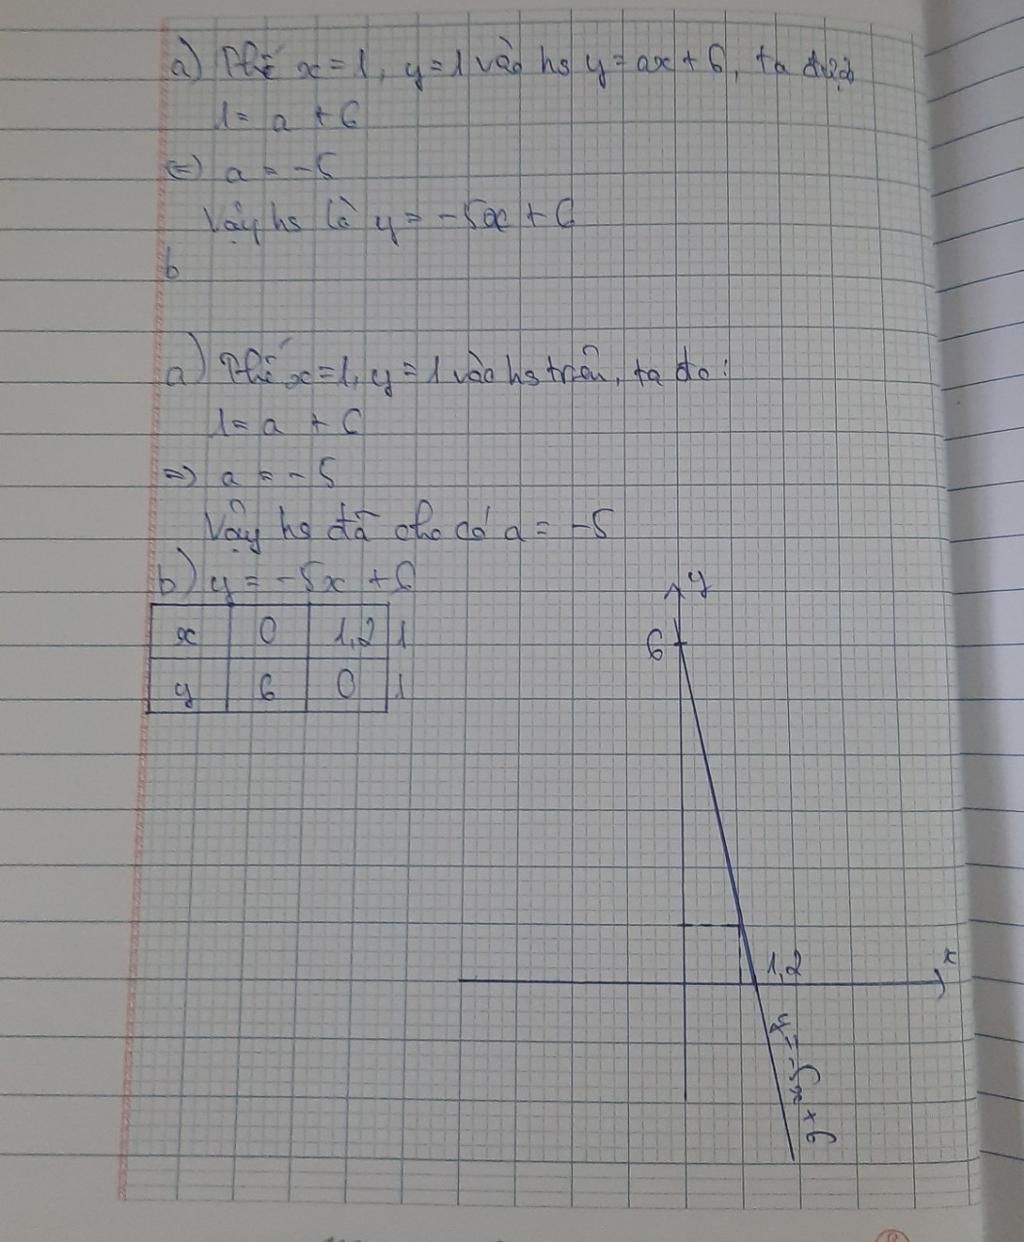 a) Thế x = 1, y = 1 vào hs y = ax + 6, ta được
1 = a + 6
⇔ a = -5
Vậy hs là y = -5x + 6
b
a) Thế x = 1, y = 1 vào hs trên, ta đc :
1 = a + 6
=> a = -5
Vậy hs đã cho có a = -5
b) y = -5x + 6
x 0 1,2 1
y 6 0 1
y
6
1,2
x
y = -5x + 6